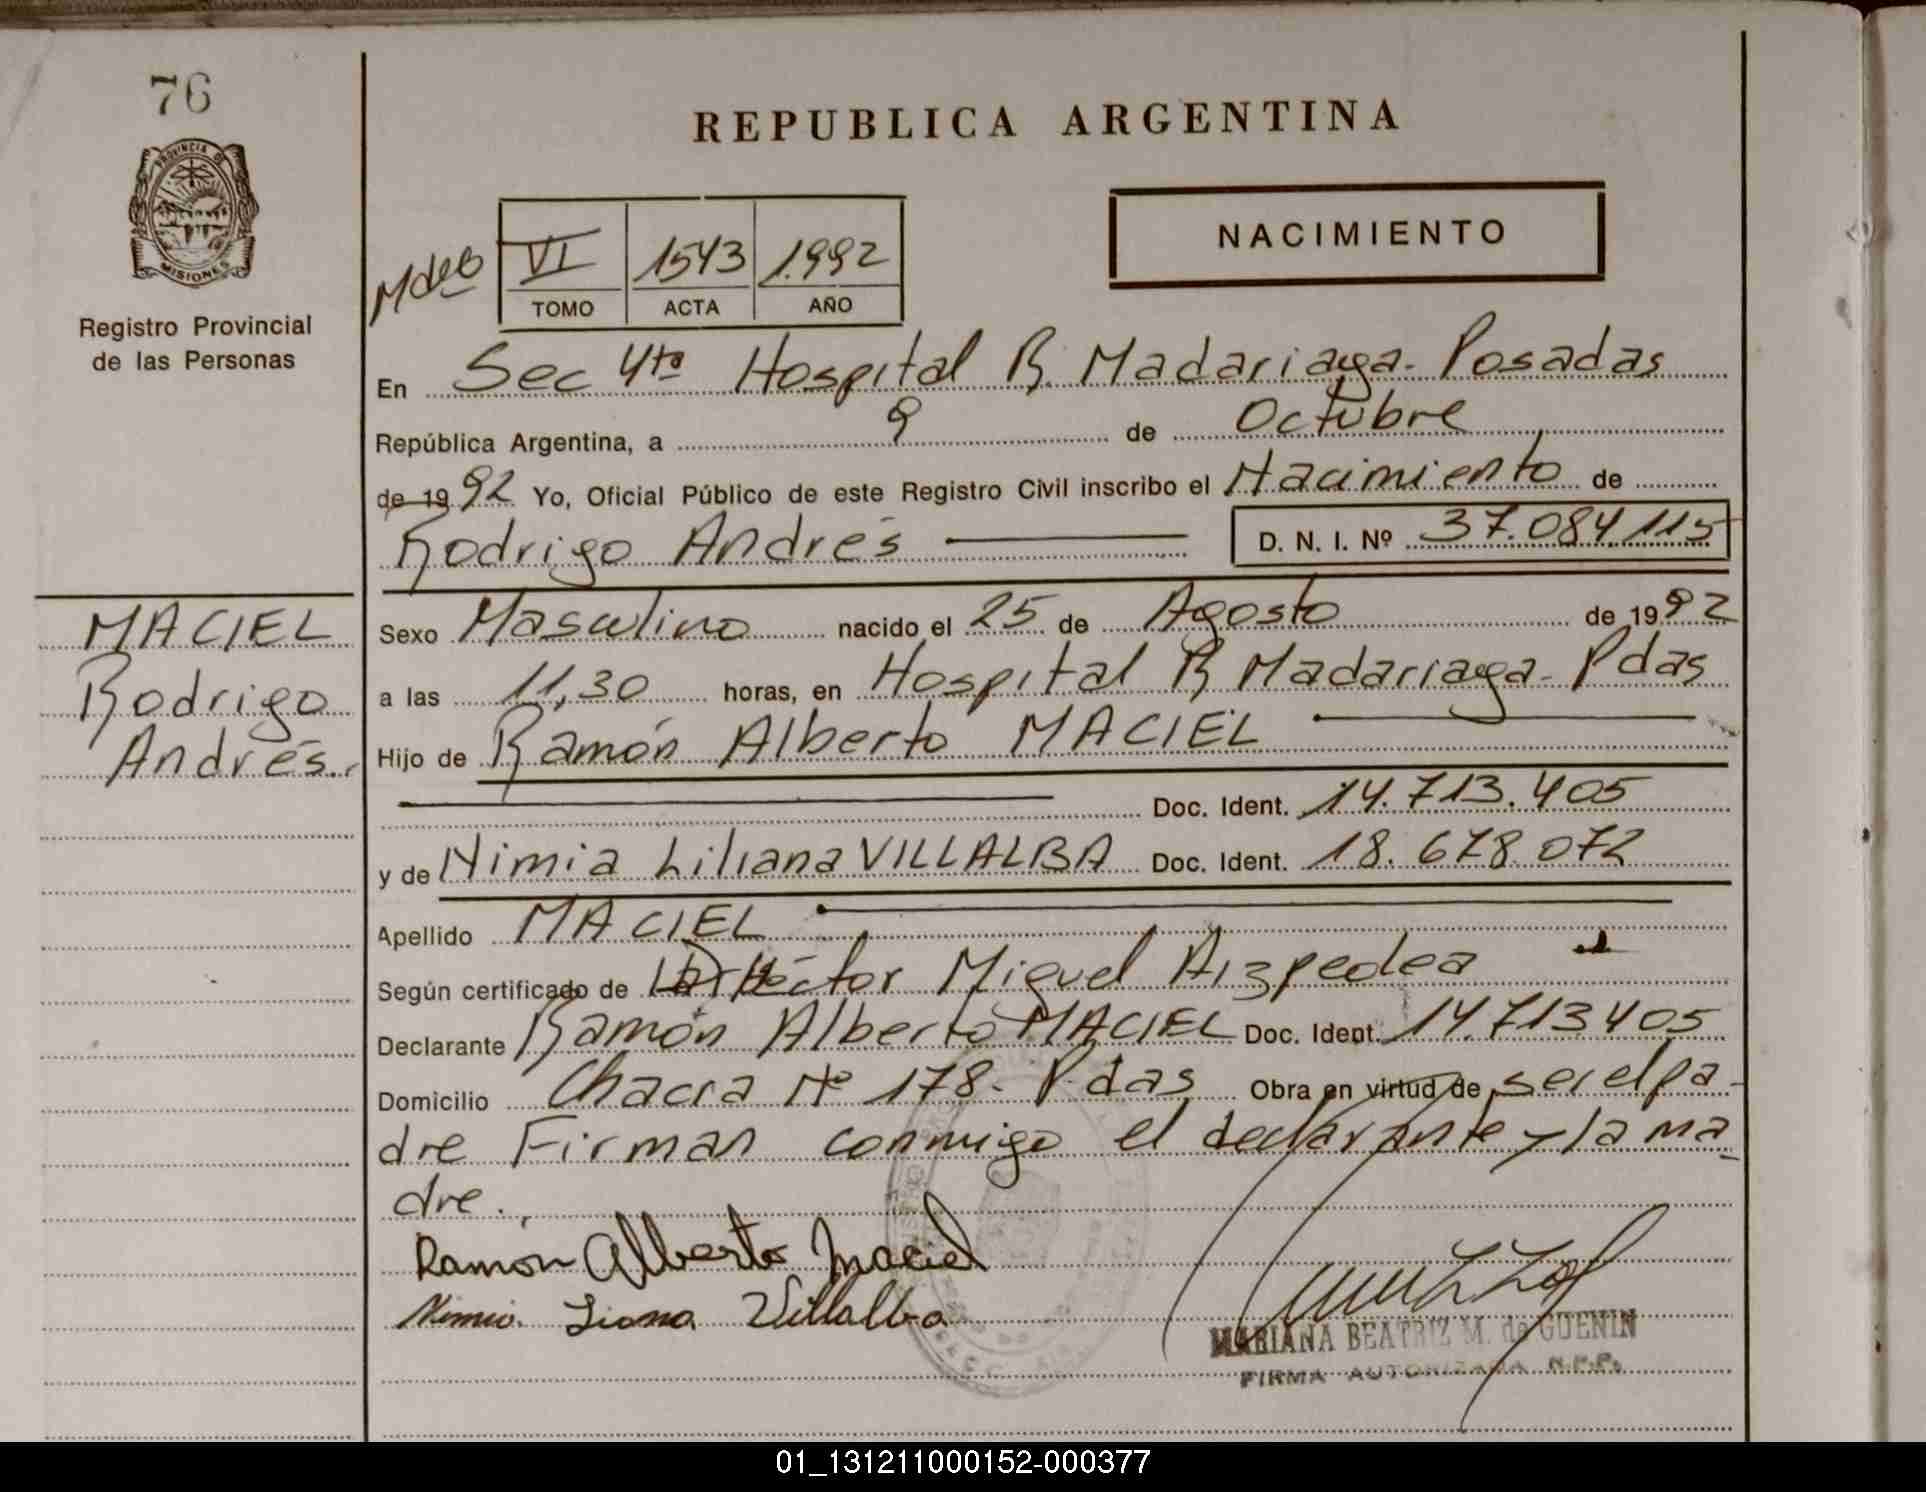 76
PROVINCIA DE
MISIONES
Registro Provincial
de las Personas
MACIEL
Rodrigo
Andrés.
REPUBLICA ARGENTINA
NACIMIENTO
VI 1543 1.992
TOMO ACTA AÑO
En Sec 4ta Hospital R. Madariaga - Posadas
República Argentina, a 9 de Octubre
de 1992 Yo, Oficial Público de este Registro Civil inscribo el Nacimiento de
Rodrigo Andrés D. N. I. Nº 37.084.115
Sexo Masculino nacido el 25 de Agosto de 1992
a las 11,30 horas, en Hospital R Madariaga - Pdas
Hijo de Ramón Alberto MACIEL
Doc. Ident. 14.713.405
y de Nimia Liliana VILLALBA Doc. Ident. 18.678.072
Apellido MACIEL
Según certificado de Héctor Miguel Aizpeolea
Declarante Ramón Alberto MACIEL Doc. Ident. 14.713405
Domicilio Chacra Nº 178 - Pdas Obra en virtud de ser el pa-
dre Firman conmigo el declarante y la ma-
dre.
Ramón Alberto Maciel
Nimia Liana Villalba
MARIANA BEATRIZ M. de GUENIN
FIRMA AUTORIZADA R.P.P.
01_131211000152-000377